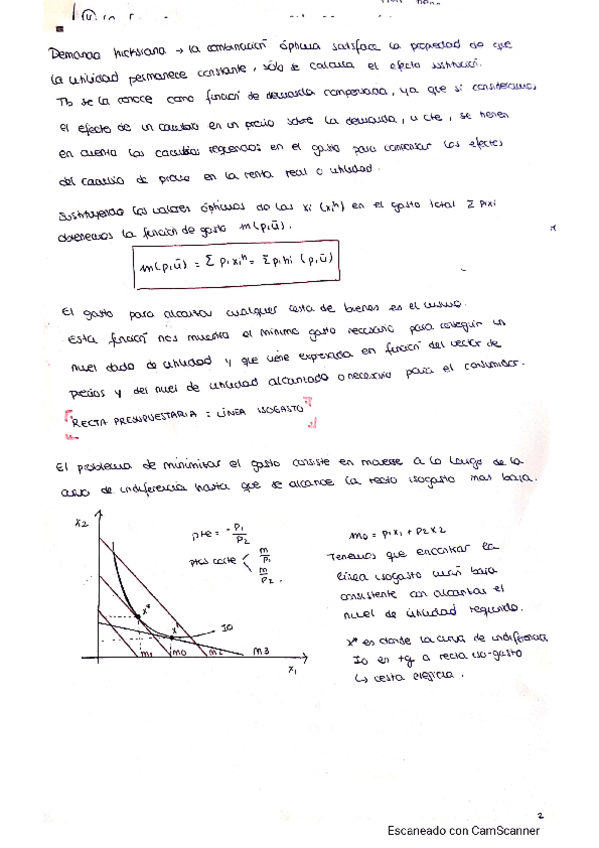 Demanda hicksiana → la combinación óptima satisface la propiedad de que
la utilidad permanece constante, sólo se calcula el efecto sustitución.
Tb se la conoce como función de demanda compensada, ya que si consideramos
el efecto de un cambio en un precio sobre la demanda, u cte, se tienen
en cuenta los cambios requeridos en el gasto para compensar los efectos
del cambio de precio en la renta real o utilidad.
Sustituyendo los valores óptimos de las xi (xiʰ) en el gasto total Σ pixi
obtenemos la función de gasto m(p,ū).
m(p,ū) = Σ pi xiʰ = Σ pi hi (p,ū)
El gasto para alcanzar cualquier cesta de bienes es el mismo.
Esta función nos muestra el mínimo gasto necesario para conseguir un
nivel dado de utilidad y que viene expresada en función del vector de
precios y del nivel de utilidad alcanzado o necesario para el consumidor.
RECTA PRESUPUESTARIA = LÍNEA ISOGASTO
El problema de minimizar el gasto consiste en moverse a lo largo de la
curva de indiferencia hasta que se alcance la recta isogasto más baja.
x2
pte = - p1/p2
ptos corte < m/p1
m/p2.
x*
x'
I0
m1 m0 m2 m3
x1
m0 = p1x1 + p2x2
Tenemos que encontrar la
línea isogasto más baja
consistente con alcanzar el
nivel de utilidad requerido.
x* es donde la curva de indiferencia
I0 en tg a recta iso-gasto
↳ cesta elegida.
2
Escaneado con CamScanner